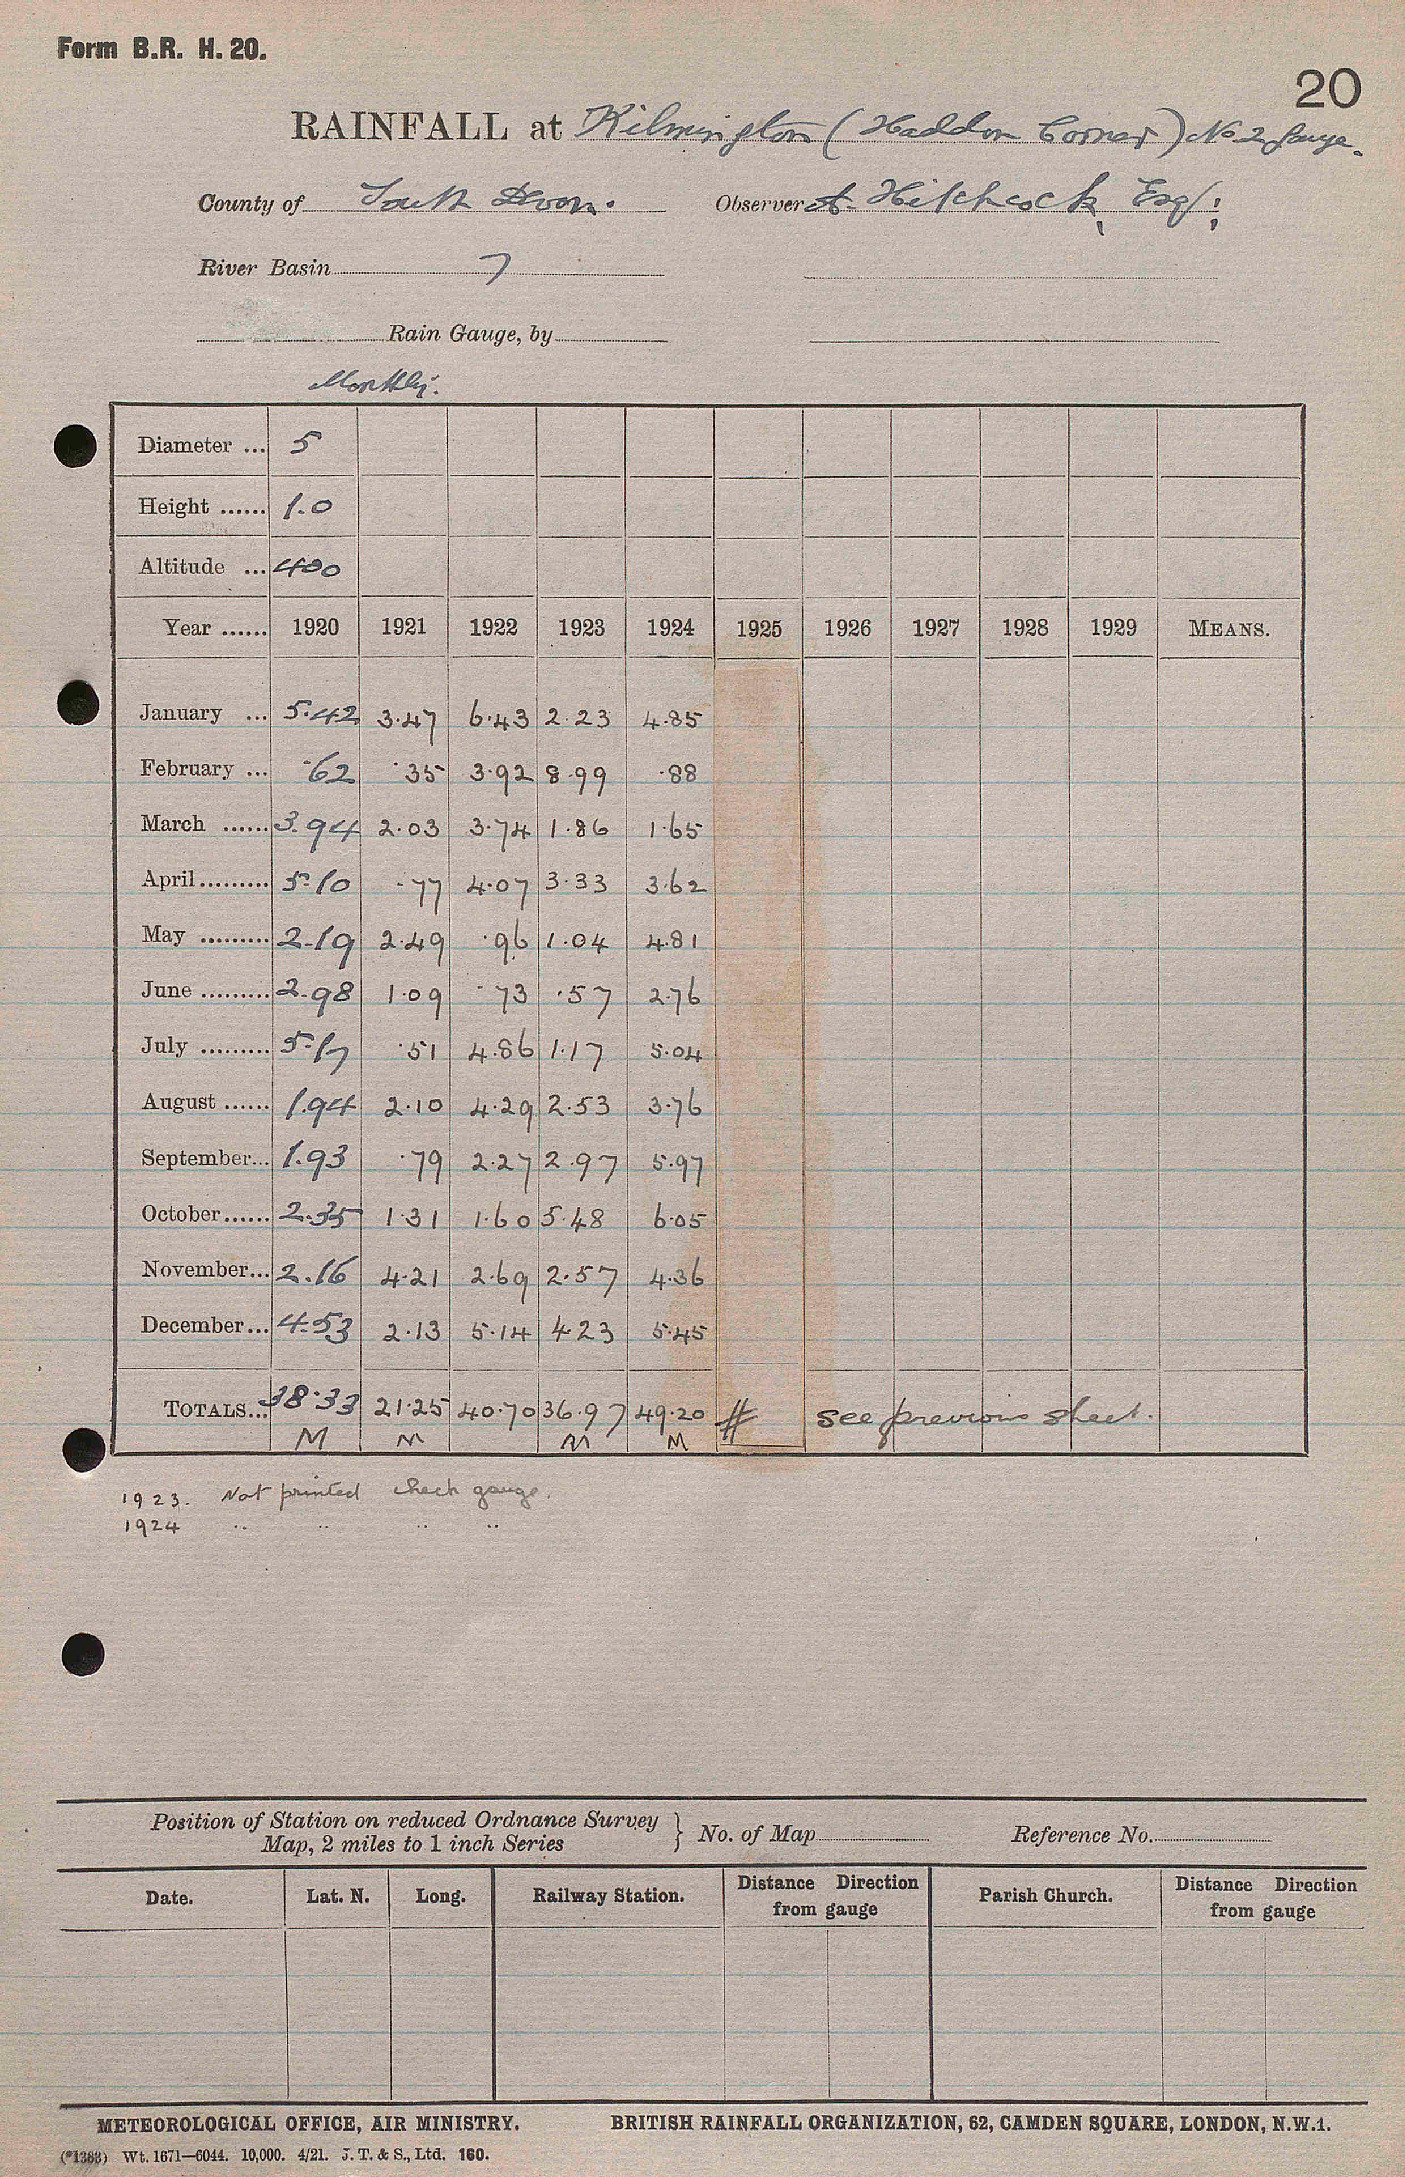 Form B.R. H. 20.
20
RAINFALL at Kilmington (Haddon Corner) No 2 Gauge.
County of South Devon. Observer A. Hitchcock, Esq;
River Basin 7
Rain Gauge, by
Monthly.
Diameter ... 5
Height ...... 1.0
Altitude ... 400
Year ...... 1920 1921 1922 1923 1924 1925 1926 1927 1928 1929 MEANS.
January ... 5.42 3.47 6.43 2.23 4.85
February ... .62 .35 3.92 8.99 .88
March ...... 3.94 2.03 3.74 1.86 1.65
April ......... 5.10 .77 4.07 3.33 3.62
May ......... 2.19 2.49 .96 1.04 4.81
June ......... 2.98 1.09 .73 .57 2.76
July ......... 5.17 .51 4.86 1.17 5.04
August ...... 1.94 2.10 4.29 2.53 3.76
September... 1.93 .79 2.27 2.97 5.97
October...... 2.35 1.31 1.60 5.48 6.05
November... 2.16 4.21 2.69 2.57 4.36
December... 4.53 2.13 5.14 4.23 5.45
TOTALS... 38.33 21.25 40.70 36.97 49.20 # see previous sheet.
M M M M
1923. Not printed check gauge.
1924 " " " "
Position of Station on reduced Ordnance Survey
Map, 2 miles to 1 inch Series } No. of Map Reference No.
Date. Lat. N. Long. Railway Station. Distance Direction from gauge Parish Church. Distance Direction from gauge
METEOROLOGICAL OFFICE, AIR MINISTRY. BRITISH RAINFALL ORGANIZATION, 62, CAMDEN SQUARE, LONDON, N.W.1.
(*1383) Wt. 1671—6044. 10,000. 4/21. J. T. & S., Ltd. 160.